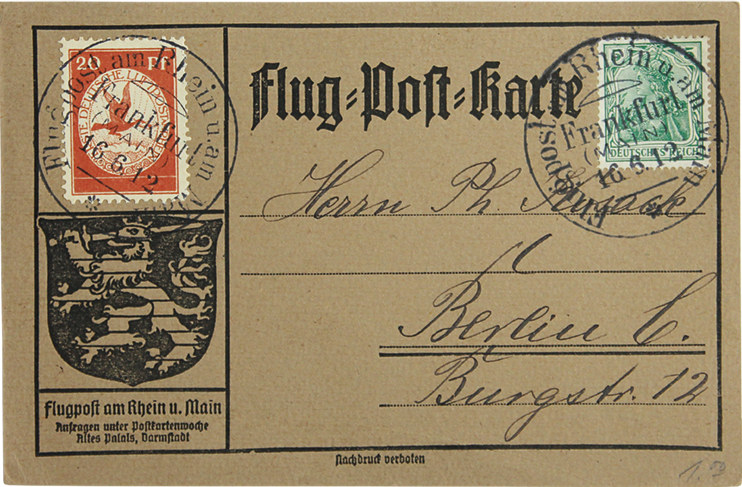 20 Pf
ERSTE DEUTSCHE LUFTPOST
Flugpost am Rhein u. am Main
Frankfurt
(MAIN)
16.6.12
Flug=Post=Karte
5
DEUTSCHES REICH
Flugpost Rhein u. am Main
Frankfurt
(MAIN)
16.6.12
Herrn Ph.
Berlin C.
Burgstr. 12
Flugpost am Rhein u. Main
Anfragen unter Postkartenwoche
Altes Palais, Darmstadt
Nachdruck verboten